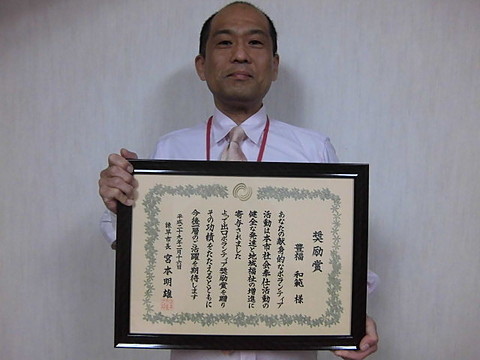 奨励賞
豊福 和範 様
あなたの献身的なボランティア
活動は本市社会奉仕活動の
健全な発達と地域福祉の増進に
寄与されました
よって出口ボランティア奨励賞を贈り
その功績をたたえるとともに
今後一層のご活躍を期待します
平成二十九年二月十六日
諫早市長 宮本明雄